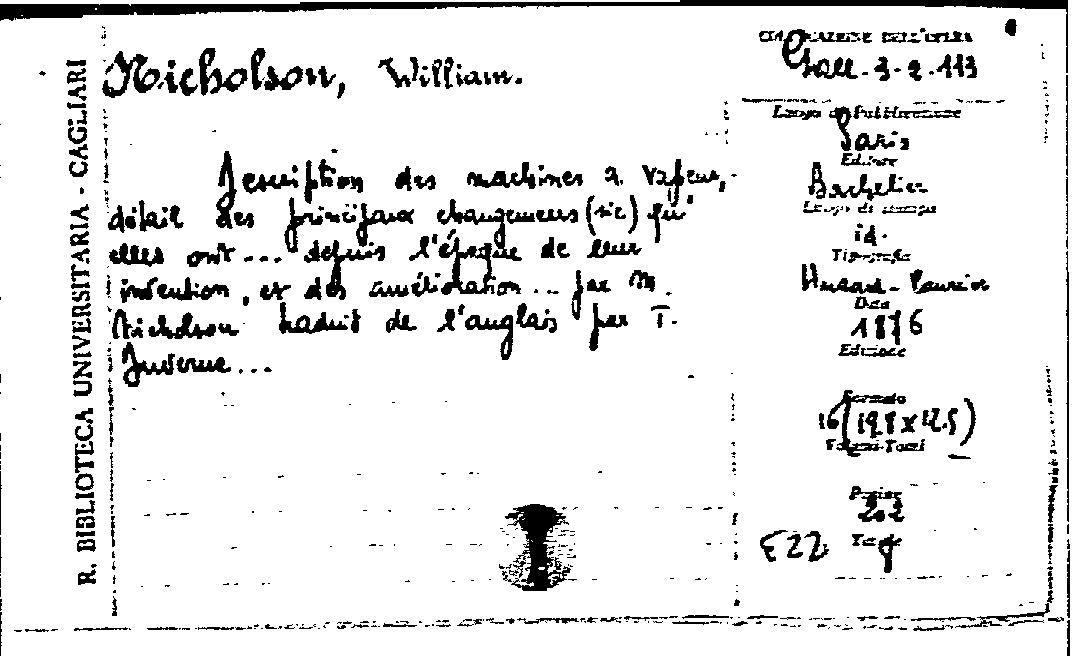 R. BIBLIOTECA UNIVERSITARIA - CAGLIARI
Nicholson, William.
Description des machines a vapeur,
détail des principaux changemens (sic) qu'
elles ont... depuis l'époque de leur
invention, et des amélioration... par M.
Nicholson traduit de l'anglais par T.
Duverne...
COLLOCAZIONE DELL'OPERA
Gall. 3-2.113
Luogo di Pubblicazione
Paris
Editore
Bachelier
Luogo di stampa
id.
Tipografia
Huzard-Courcier
Data
1876
Edizione
Formato
16 (19,8 x 12.5)
Volumi-Tomi
Pagine
202
Tavole
9
E22